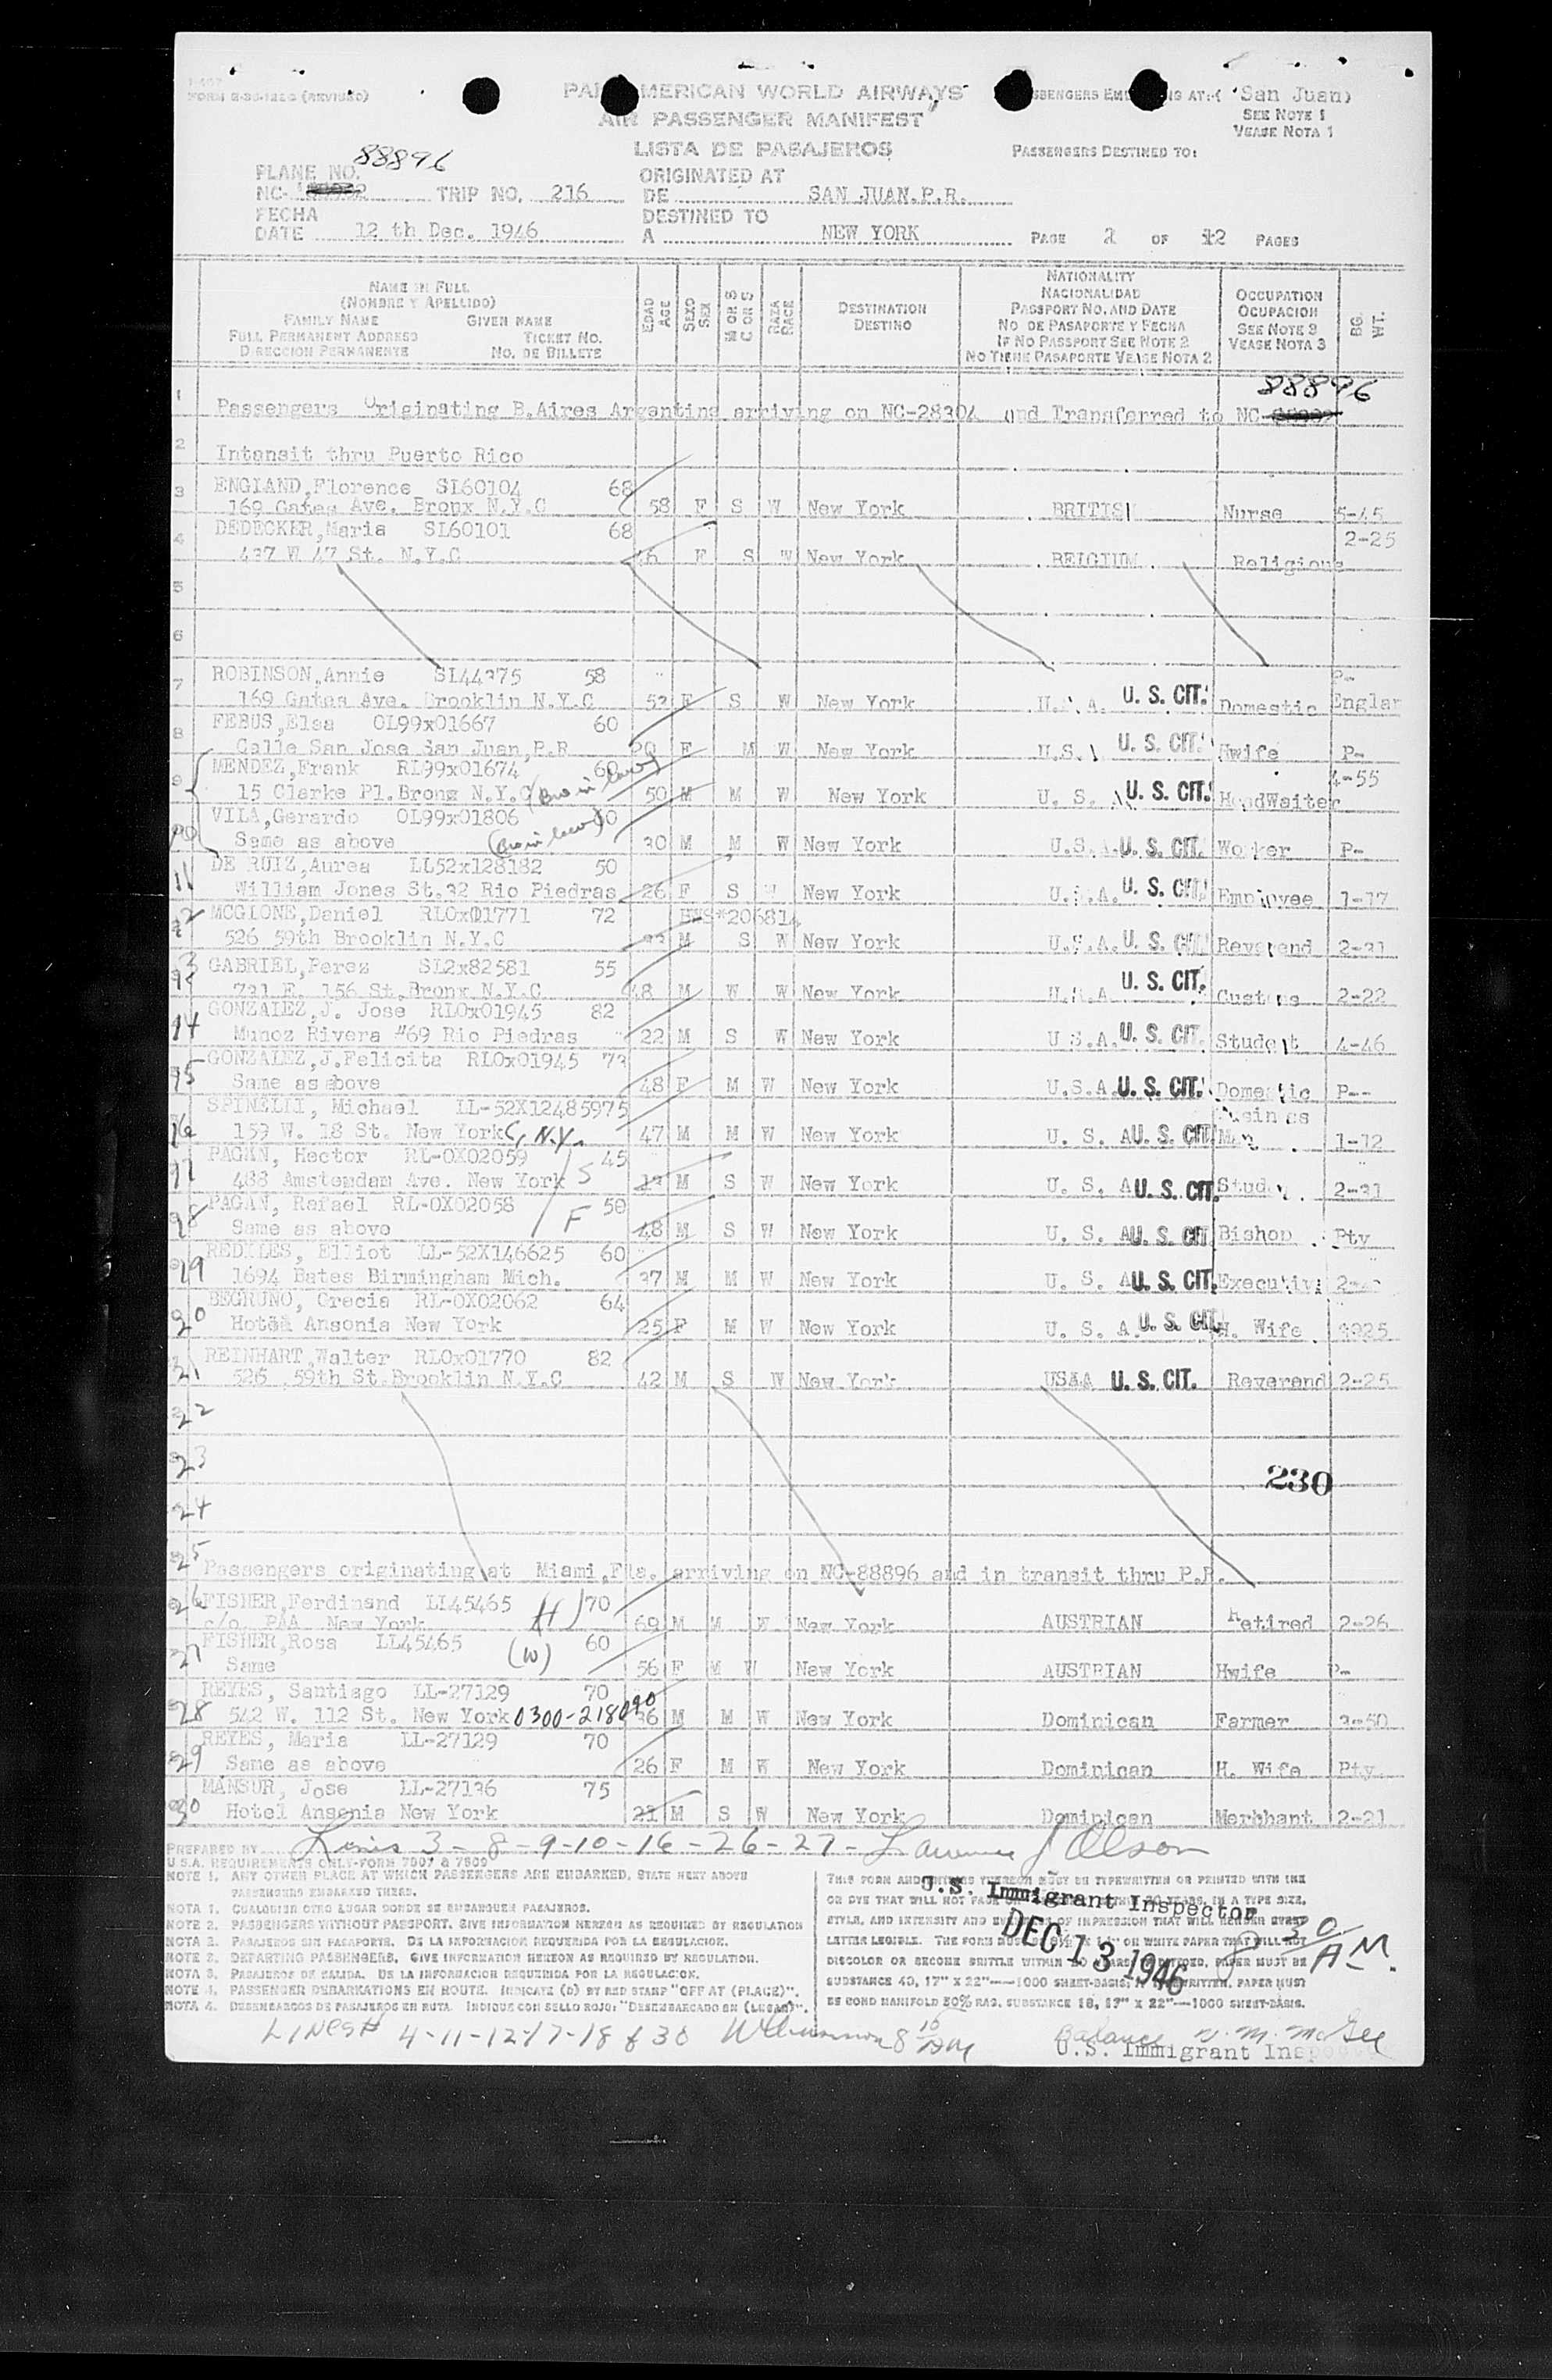 FORM (REVISED)
PAN AMERICAN WORLD AIRWAYS
AIR PASSENGER MANIFEST
LISTA DE PASAJEROS
PASSENGERS EMBARKING AT:( San Juan)
SEE NOTE 1
VEASE NOTA 1
PASSENGERS DESTINED TO:
88896
PLANE NO.
NC- TRIP NO. 216
ORIGINATED AT
DE SAN JUAN.P.R.
FECHA
DATE 12 th Dec. 1946
DESTINED TO
A NEW YORK
PAGE OF 12 PAGES
NAME IN FULL
(NOMBRE Y APELLIDO)
FAMILY NAME GIVEN NAME
FULL PERMANENT ADDRESS TICKET NO.
DIRECCION PERMANENTE NO. DE BILLETE
EDAD AGE
SEXO SEX
M OR S C OR S
RAZA RACE
DESTINATION
DESTINO
NATIONALITY
NACIONALIDAD
PASSPORT NO. AND DATE
NO DE PASAPORTE Y FECHA
IF NO PASSPORT SEE NOTE 2
NO TIENE PASAPORTE VEASE NOTA 2
OCCUPATION
OCUPACION
SEE NOTE 3
VEASE NOTA 3
BG. WT.
88896
1 Passengers Originating B.Aires Argentina arriving on NC-28304 and Transferred to NC
2 Intansit thru Puerto Rico
3 ENGLAND,Florence SL60104 68
169 Gates Ave. Bronx N.Y.C 58 F S W New York BRITISH Nurse 5-45
4 DEDECKER,Maria SL60101 68 2-25
437 W 47 St. N.Y.C 46 F S W New York BELGIUM Religious
5
6
7 ROBINSON,Annie SL44375 58 P-
169 Gates Ave. Brooklin N.Y.C 53 F S W New York U.S.A. U. S. CIT. Domestic Englan
8 FEBUS,Elsa OL99x01667 60
Calle San Jose San Juan,P.R 20 F M W New York U.S.A U. S. CIT. Hwife P-
9 MENDEZ,Frank RL99x01674 60 4-55
15 Clarke Pl.Bronx N.Y.C (Bro in law) 50 M M W New York U. S. A U. S. CIT. HeadWaiter
10 VILA,Gerardo OL99x01806
Same as above (Bro in law) 30 M M W New York U.S.A. U. S. CIT. Worker P-
11 DE RUIZ,Aurea LL52x128182 50
William Jones St.32 Rio Piedras 26 F S W New York U.S.A. U. S. CIT. Employee 1-17
12 MCGLONE,Daniel RLOx01771 72 206814
526 59th Brooklin N.Y.C 33 M S W New York U.S.A. U. S. CIT. Reverend 2-31
13 GABRIEL,Perez SL2x82581 55
731 E. 156 St.Bronx N.Y.C 48 M W W New York U.S.A U. S. CIT. Customs 2-22
14 GONZALEZ,J. Jose RLOx01945 82
Munoz Rivera #69 Rio Piedras 22 M S W New York U.S.A. U. S. CIT. Student 4-46
15 GONZALEZ,J.Felicita RLOx01945 73
Same as above 48 F M W New York U.S.A U. S. CIT. Domestic P--
16 SPINELLI, Michael LL-52X12485975 Business
159 W. 18 St. New York C, N.Y. 47 M M W New York U. S. A U. S. CIT Man 1-12
17 PAGAN, Hector RL-OX02059 45
488 Amsterdam Ave. New York S 13 M S W New York U. S. A U. S. CIT. Stud. 2-31
18 PAGAN, Rafael RL-OX02058 50
Same as above F 48 M S W New York U. S. A U. S. CIT Bishop Pty
19 REDILES, Elliot LL-52X146625 60
1694 Bates Birmingham Mich. 37 M M W New York U. S. A U. S. CIT. Executive
20 BEGRUNO, Grecia RL-OX02062 64
Hotel Ansonia New York 25 F M W New York U. S. A. U. S. CIT. H. Wife 3025
21 REINHART,Walter RLOx01770 82
526 59th St.Brooklin N.Y.C 42 M S W New York USAA U. S. CIT. Reverend 2-25
22
23
230
24
25 Passengers originating at Miami,Fla. arriving on NC-88896 and in transit thru P.R.
26 FISHER,Ferdinand LL45465 (H) 70
c/o PAA New York 69 M M W New York AUSTRIAN Retired 2-26
27 FISHER,Rosa LL45465 (W) 60
Same 56 F M W New York AUSTRIAN Hwife P-
28 REYES, Santiago LL-27129 70
542 W. 112 St. New York 0300-218090 36 M M W New York Dominican Farmer 3-50
29 REYES, Maria LL-27129 70
Same as above 26 F M W New York Dominican H. Wife Pty
30 MANSUR, Jose LL-27136 75
Hotel Ansonia New York 21 M S W New York Dominican Merchant 2-21
PREPARED BY Lines 3-8-9-10-16-26-27- Lawrence J Olson
U.S.A. REQUIREMENTS ONLY-FORM 7507 & 7509
NOTE 1. ANY OTHER PLACE AT WHICH PASSENGERS ARE EMBARKED, STATE NEXT ABOVE
PASSENGERS EMBARKED THERE.
NOTA 1. CUALQUIER OTRO LUGAR DONDE SE EMBARQUEN PASAJEROS.
NOTE 2. PASSENGERS WITHOUT PASSPORT. GIVE INFORMATION HEREON AS REQUIRED BY REGULATION
NOTA 2. PASAJEROS SIN PASAPORTE. DE LA INFORMACION REQUERIDA POR LA REGULACION.
NOTE 3. DEPARTING PASSENGERS. GIVE INFORMATION HEREON AS REQUIRED BY REGULATION.
NOTA 3. PASAJEROS DE SALIDA. DE LA INFORMACION REQUERIDA POR LA REGULACION.
NOTE 4. PASSENGER DEBARKATIONS EN ROUTE. INDICATE (D) BY RED STAMP "OFF AT (PLACE)".
NOTA 4. DESEMBARCOS DE PASAJEROS EN RUTA. INDIQUE CON SELLO ROJO: "DESEMBARCADO EN (LUGAR)".
THIS FORM AND ENTRIES THEREON MUST BE TYPEWRITTEN OR PRINTED WITH INK
OR DYE THAT WILL NOT FADE YEARS, IN A TYPE SIZE,
STYLE, AND INTENSITY AND OF IMPRESSION THAT WILL RENDER EVERY
LETTER LEGIBLE. THE FORM MUST ON WHITE PAPER THAT WILL NOT
DISCOLOR OR BECOME BRITTLE WITHIN PAPER MUST BE
SUBSTANCE 40, 17" X 22"—1000 SHEET-BASIS; PAPER MUST
BE BOND MANIFOLD 50% RAG. SUBSTANCE 18, 17" X 22"—1000 SHEET-BASIS.
U.S. Immigrant Inspector
DEC 13 1946
8 30 A M.
LINES# 4-11-12-17-18 & 30 8 10 AM
Balance N. M. McGee
U.S. Immigrant Inspector